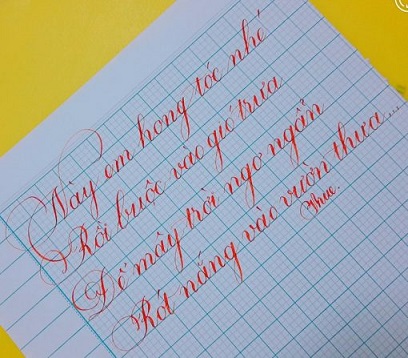 Này em hong tóc nhé
Rồi buộc vào gió trưa
Để mây trời ngơ ngẩn
Rót nắng vào vườn thưa...
Thuc.